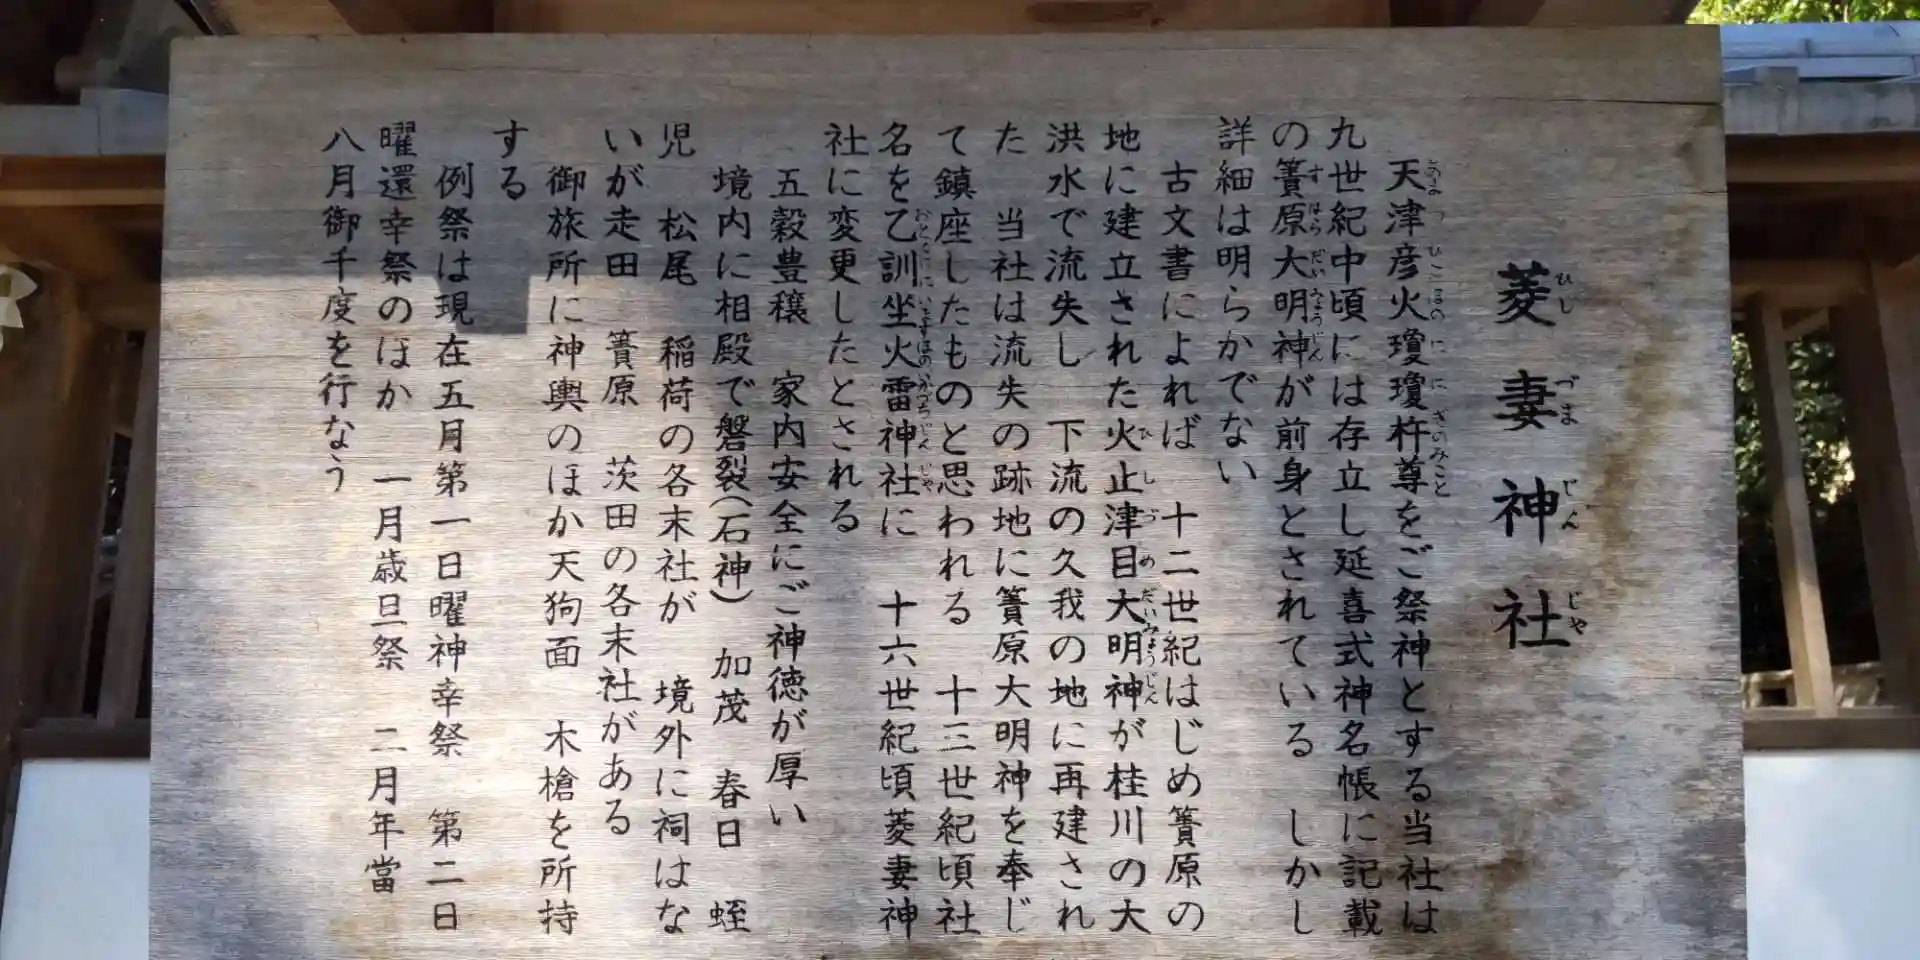 菱妻神社
天津彦火瓊瓊杵尊をご祭神とする当社は
九世紀中頃には存立し延喜式神名帳に記載
の簀原大明神が前身とされている　しかし
詳細は明らかでない
古文書によれば　十二世紀はじめ簀原の
地に建立された火止津目大明神が桂川の大
洪水で流失し　下流の久我の地に再建され
た　当社は流失の跡地に簀原大明神を奉じ
て鎮座したものと思われる　十三世紀頃社
名を乙訓坐火雷神社に　十六世紀頃菱妻神
社に変更したとされる
五穀豊穣　家内安全にご神徳が厚い
境内に相殿で磐裂(石神)　加茂　春日　蛭
児　松尾　稲荷の各末社が　境外に祠はな
いが走田　簀原　茨田の各末社がある
御旅所に神輿のほか天狗面　木槍を所持
する
例祭は現在五月第一日曜神幸祭　第二日
曜還幸祭のほか　一月歳旦祭　二月年當
八月御千度を行なう